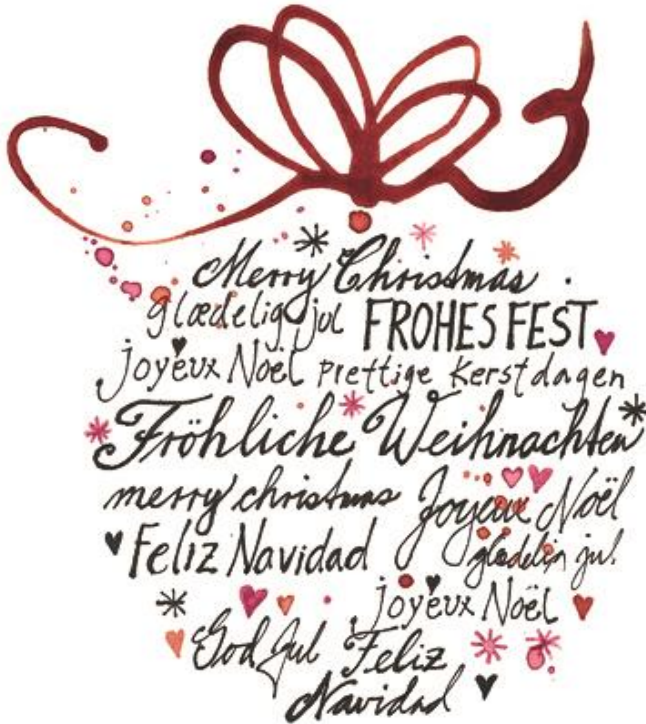 Merry Christmas
glædelig jul FROHES FEST
joyeux Noël prettige kerstdagen
Fröhliche Weihnachten
merry christmas Joyeux Noël
Feliz Navidad glædelig jul.
joyeux Noël
God Jul Feliz
Navidad